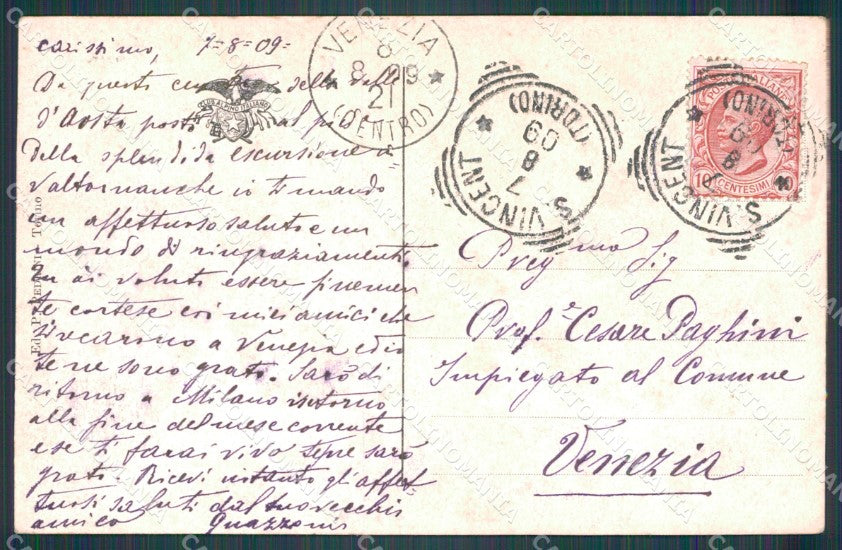 carissimo, 7-8-09=
Da questo della valle
d'Aosta
della splendida escursione a
Valtornanche io ti mando
un affettuoso saluto e un
mondo di ringraziamenti.
Tu ai voluto essere
te cortese coi miei amici che
si recarono a Venezia ed io
te ne sono grato. Sarò di
ritorno a Milano intorno
alla fine del mese corrente
e se ti farai vivo sarò
grato. Ricevi intanto gli affet
tuosi saluti dal tuo vecchio
amico
CLUB ALPINO ITALIANO
VENEZIA
8
8 09
21
(CENTRO)
S. VINCENT
7
8
09
(TORINO)
POSTE ITALIANE
10 CENTESIMI 10
S. VINCENT
7
8
09
(TORINO)
Preg mo Sig
Prof. e Cesare Paghini
Impiegato al Comune
Venezia
CARTOLINOMANIA